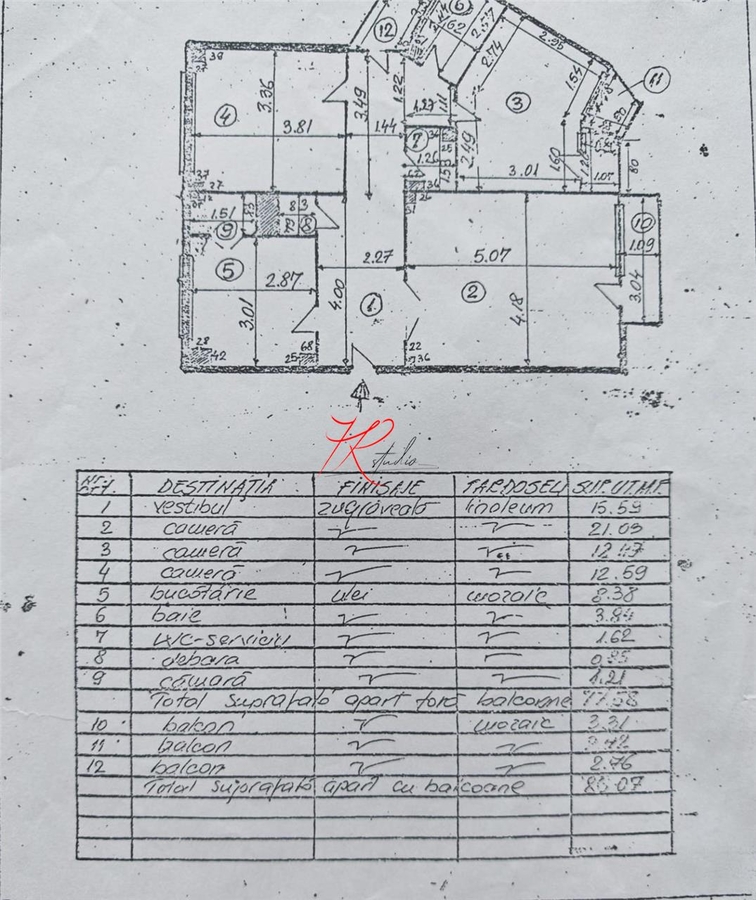 12
6
1.62
2.74
2.95
11
39
27
3.36
3.49
1.22
1.54
4
3
3.81
1.44
1.27
1.11
7
34
25
2.49
1.26
1.60
1.21
80
3.01
1.05
80
37
27
1.51
8
3
9
79
8
10
5
2.27
5.07
1.09
2.87
2
3.01
4.00
1
4.18
3.04
28
42
68
25
22
36
HR
studio
NR. CRT. DESTINAȚIA FINISAJE PARDOSELI SUP. UT. M.P.
1 vestibul zugrăveală linoleum 15.59
2 cameră 21.09
3 cameră
4 cameră 12.59
5 bucătărie ulei mozaic 8.38
6 baie 3.84
7 WC-serviciu 1.62
8 debara 0.85
9 cămară 1.21
Total suprafață apart fără balcoane 77.58
10 balcon mozaic 3.31
11 balcon
12 balcon 2.76
Total suprafață apart cu balcoane